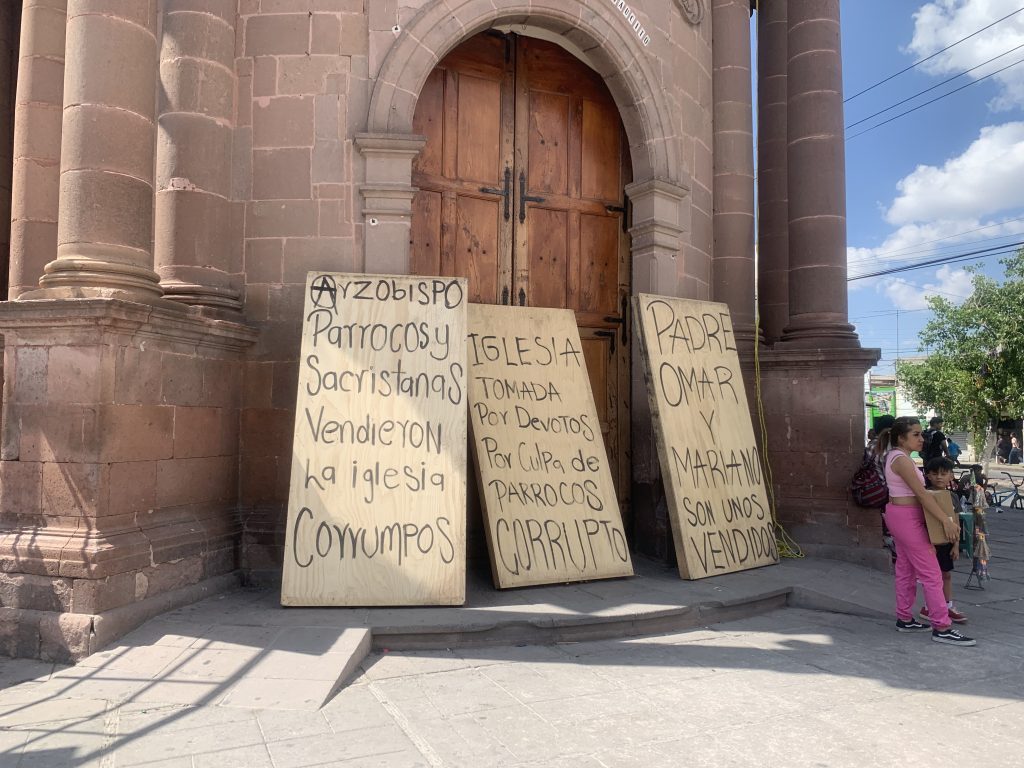 Arzobispo
Parrocos y
Sacristanas
Vendieron
La iglesia
Corrumpos
IGLESIA
TOMADA
Por Devotos
Por Culpa de
PARROCOS
CORRUPTO
PADRE
OMAR
Y
MARIANO
SON UNOS
VENDIDOS